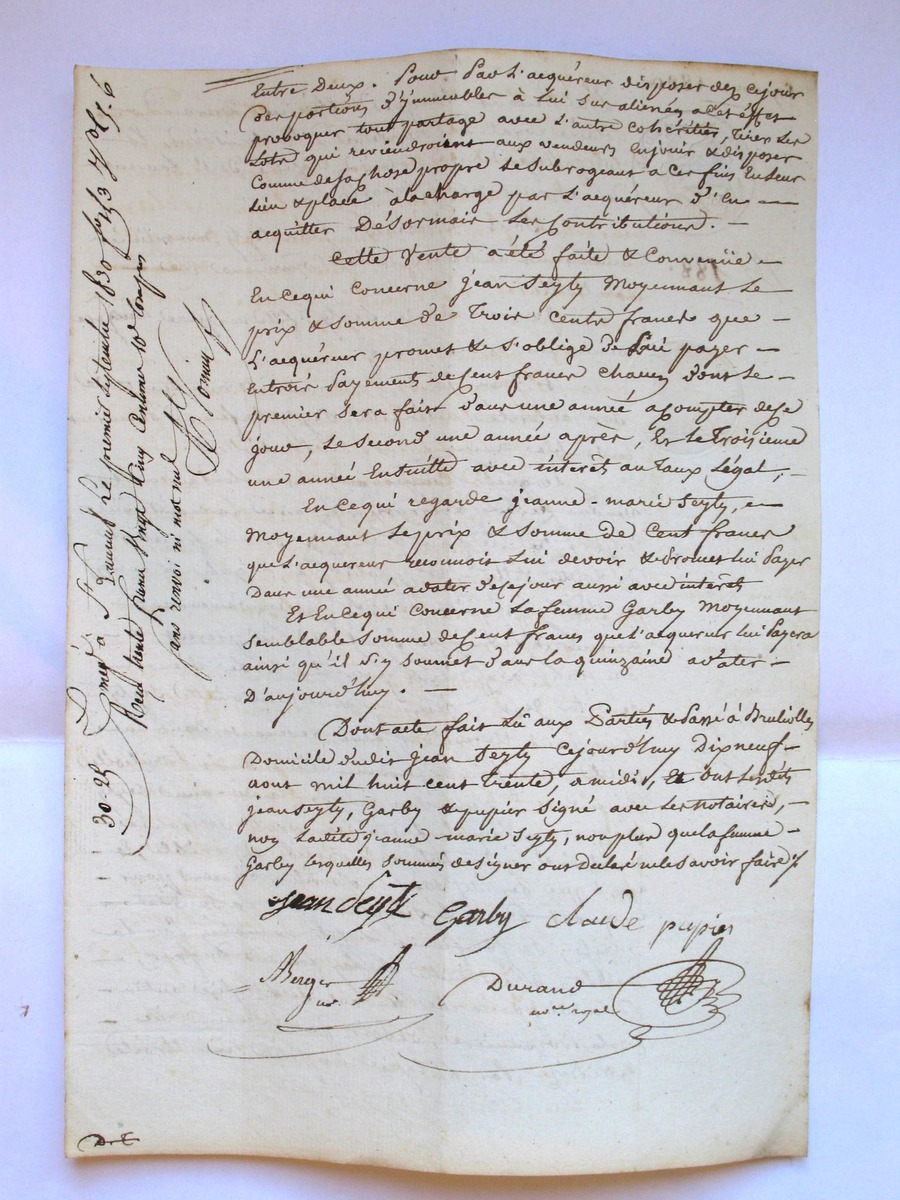 Entre Deux. Pour Par L'acquéreur disposer dez cejour
Des portions d'ynmeubles à Lui sus aliénées a cet éffet
provoquer tout partage avec L'autre cohéritier, tirer Les
Lots qui reviendroient aux vendeurs En jouir & disposer
Comme de sa chose propre Le subrogeant a ces fins En Leur
Lieu & place àlacharge par L'acquéreur d'En —
acquitter Désormais Les Contributions. —
Cette Vente a été faite & Convenüe —
En cequi concerne jean Seyty Moyennant Le
prix & somme de Trois cents francs que —
L'acquéreur promet & s'oblige de Lui payer —
En trois Payements de Cent francs chacun dont Le —
premier sera fait dans une année acompter dece
jour, Le second une année après, Et Le Troisième
une année En suitte avec intérêt au taux Légal, —
En cequi regarde jeanne-marie Seyty, —
Moyennant Le prix & somme De Cent francs
que L'acquereur reconnois Lui devoir & Promet Lui Payer
Dans une année adater decejour aussi avec intérêt
Et En cequi concerne La femme Garby Moyennant
semblable somme de Cent francs que L'acquereur Lui Payera
ainsi qu'il s'y soumet dans la quinzaine adater —
D'aujourd'huy. —
Dont acte fait Lu aux Parties & Passé à Brulliolles
Domicile dudit jean Seyty Cejourd'huy Dix neuf —
aout mil huit cent trente, a midi, Et ont Lesdits
jean Seyty, Garby & pupier signé avec Les notaires, —
non Ladite jeanne-marie Seyty, non plus que la femme —
Garby Lesquelles sommées de signer ont Déclaré ne le savoir faire
jean Seyti Garby claude pupier
Berger
nre
Durand
nore royal
D. E
Enregé à St Laurent Le premier septembre 1830 fo 43 Vo C. 6
Reçu trente francs Vingt Cinq Centimes 10e Compris
sans renvoi ni mot nul
30-25